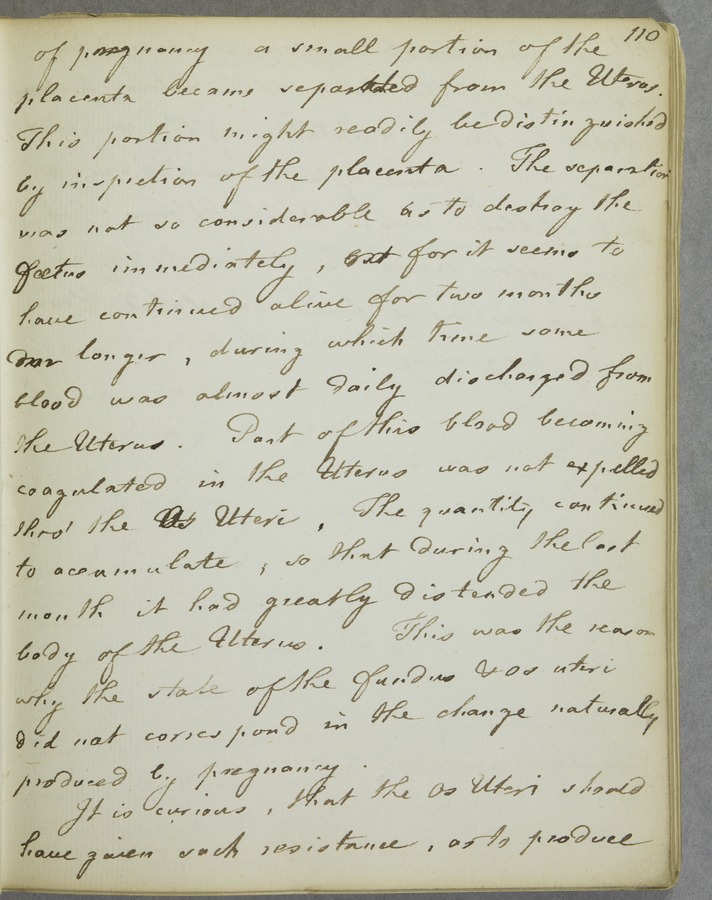 110
of pregnancy a small portion of the
placenta became separated from the Uterus.
This portion might readily be distinguished
by inspection of the placenta. The separation
was not so considerable as to destroy the
foetus immediately, for it seems to
have continued alive for two months
longer, during which time some
blood was almost daily discharged from
the Uterus. Part of this blood becoming
coagulated in the Uterus was not expelled
thro' the Os Uteri, The quantity continued
to accumulate, so that during the last
month it had greatly distended the
body of the Uterus. This was the reason
why the state of the fundus & os uteri
did not correspond in the change naturally
produced by pregnancy.
It is curious, that the Os Uteri should
have given such resistance, as to produce